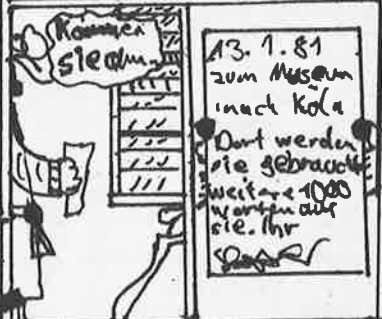 Kommen
sie am
13.1.81
zum Museum
nach Köln
Dort werden
sie gebraucht
weitere 1000
warten auf
sie. Ihr